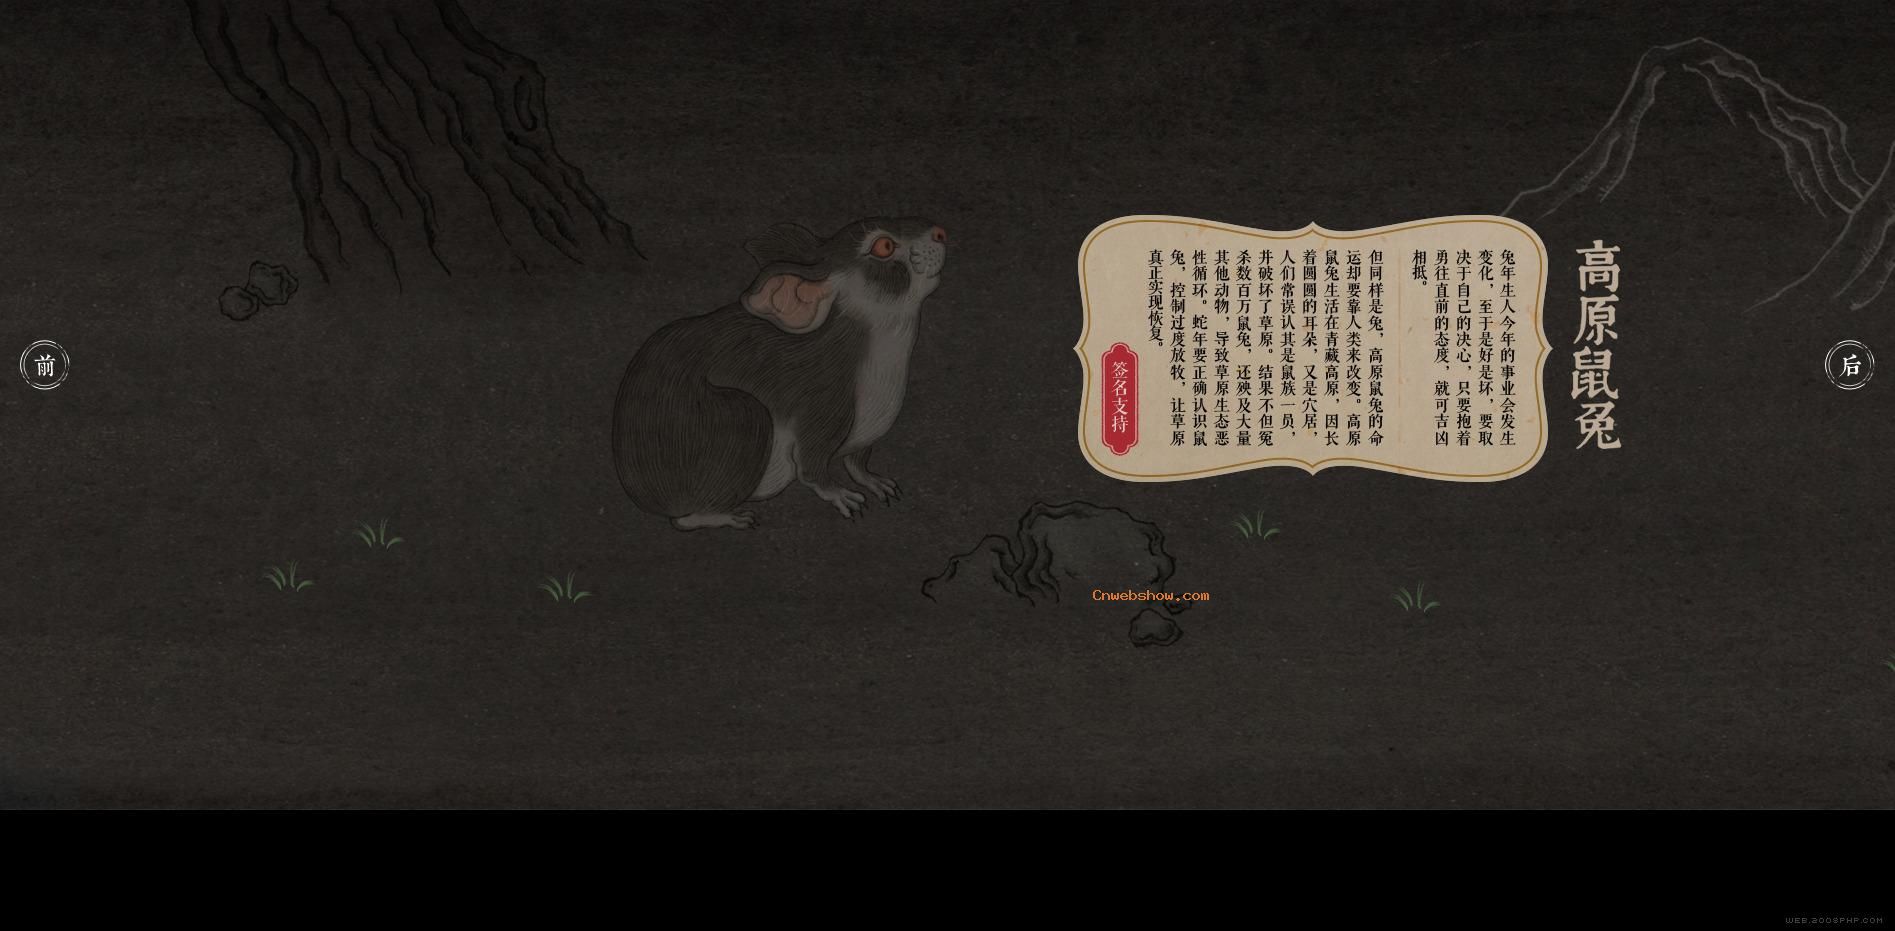 高原鼠兔
兔年生人今年的事业会发生
变化，至于是好是坏，要取
决于自己的决心，只要抱着
勇往直前的态度，就可吉凶
相抵。
但同样是兔，高原鼠兔的命
运却要靠人类来改变。高原
鼠兔生活在青藏高原，因长
着圆圆的耳朵，又是穴居，
人们常误认其是鼠族一员，
并破坏了草原。结果不但冤
杀数百万鼠兔，还殃及大量
其他动物，导致草原生态恶
性循环。蛇年要正确认识鼠
兔，控制过度放牧，让草原
真正实现恢复。
签名支持
前
后
Cnwebshow.com
WEB.2008PHP.COM